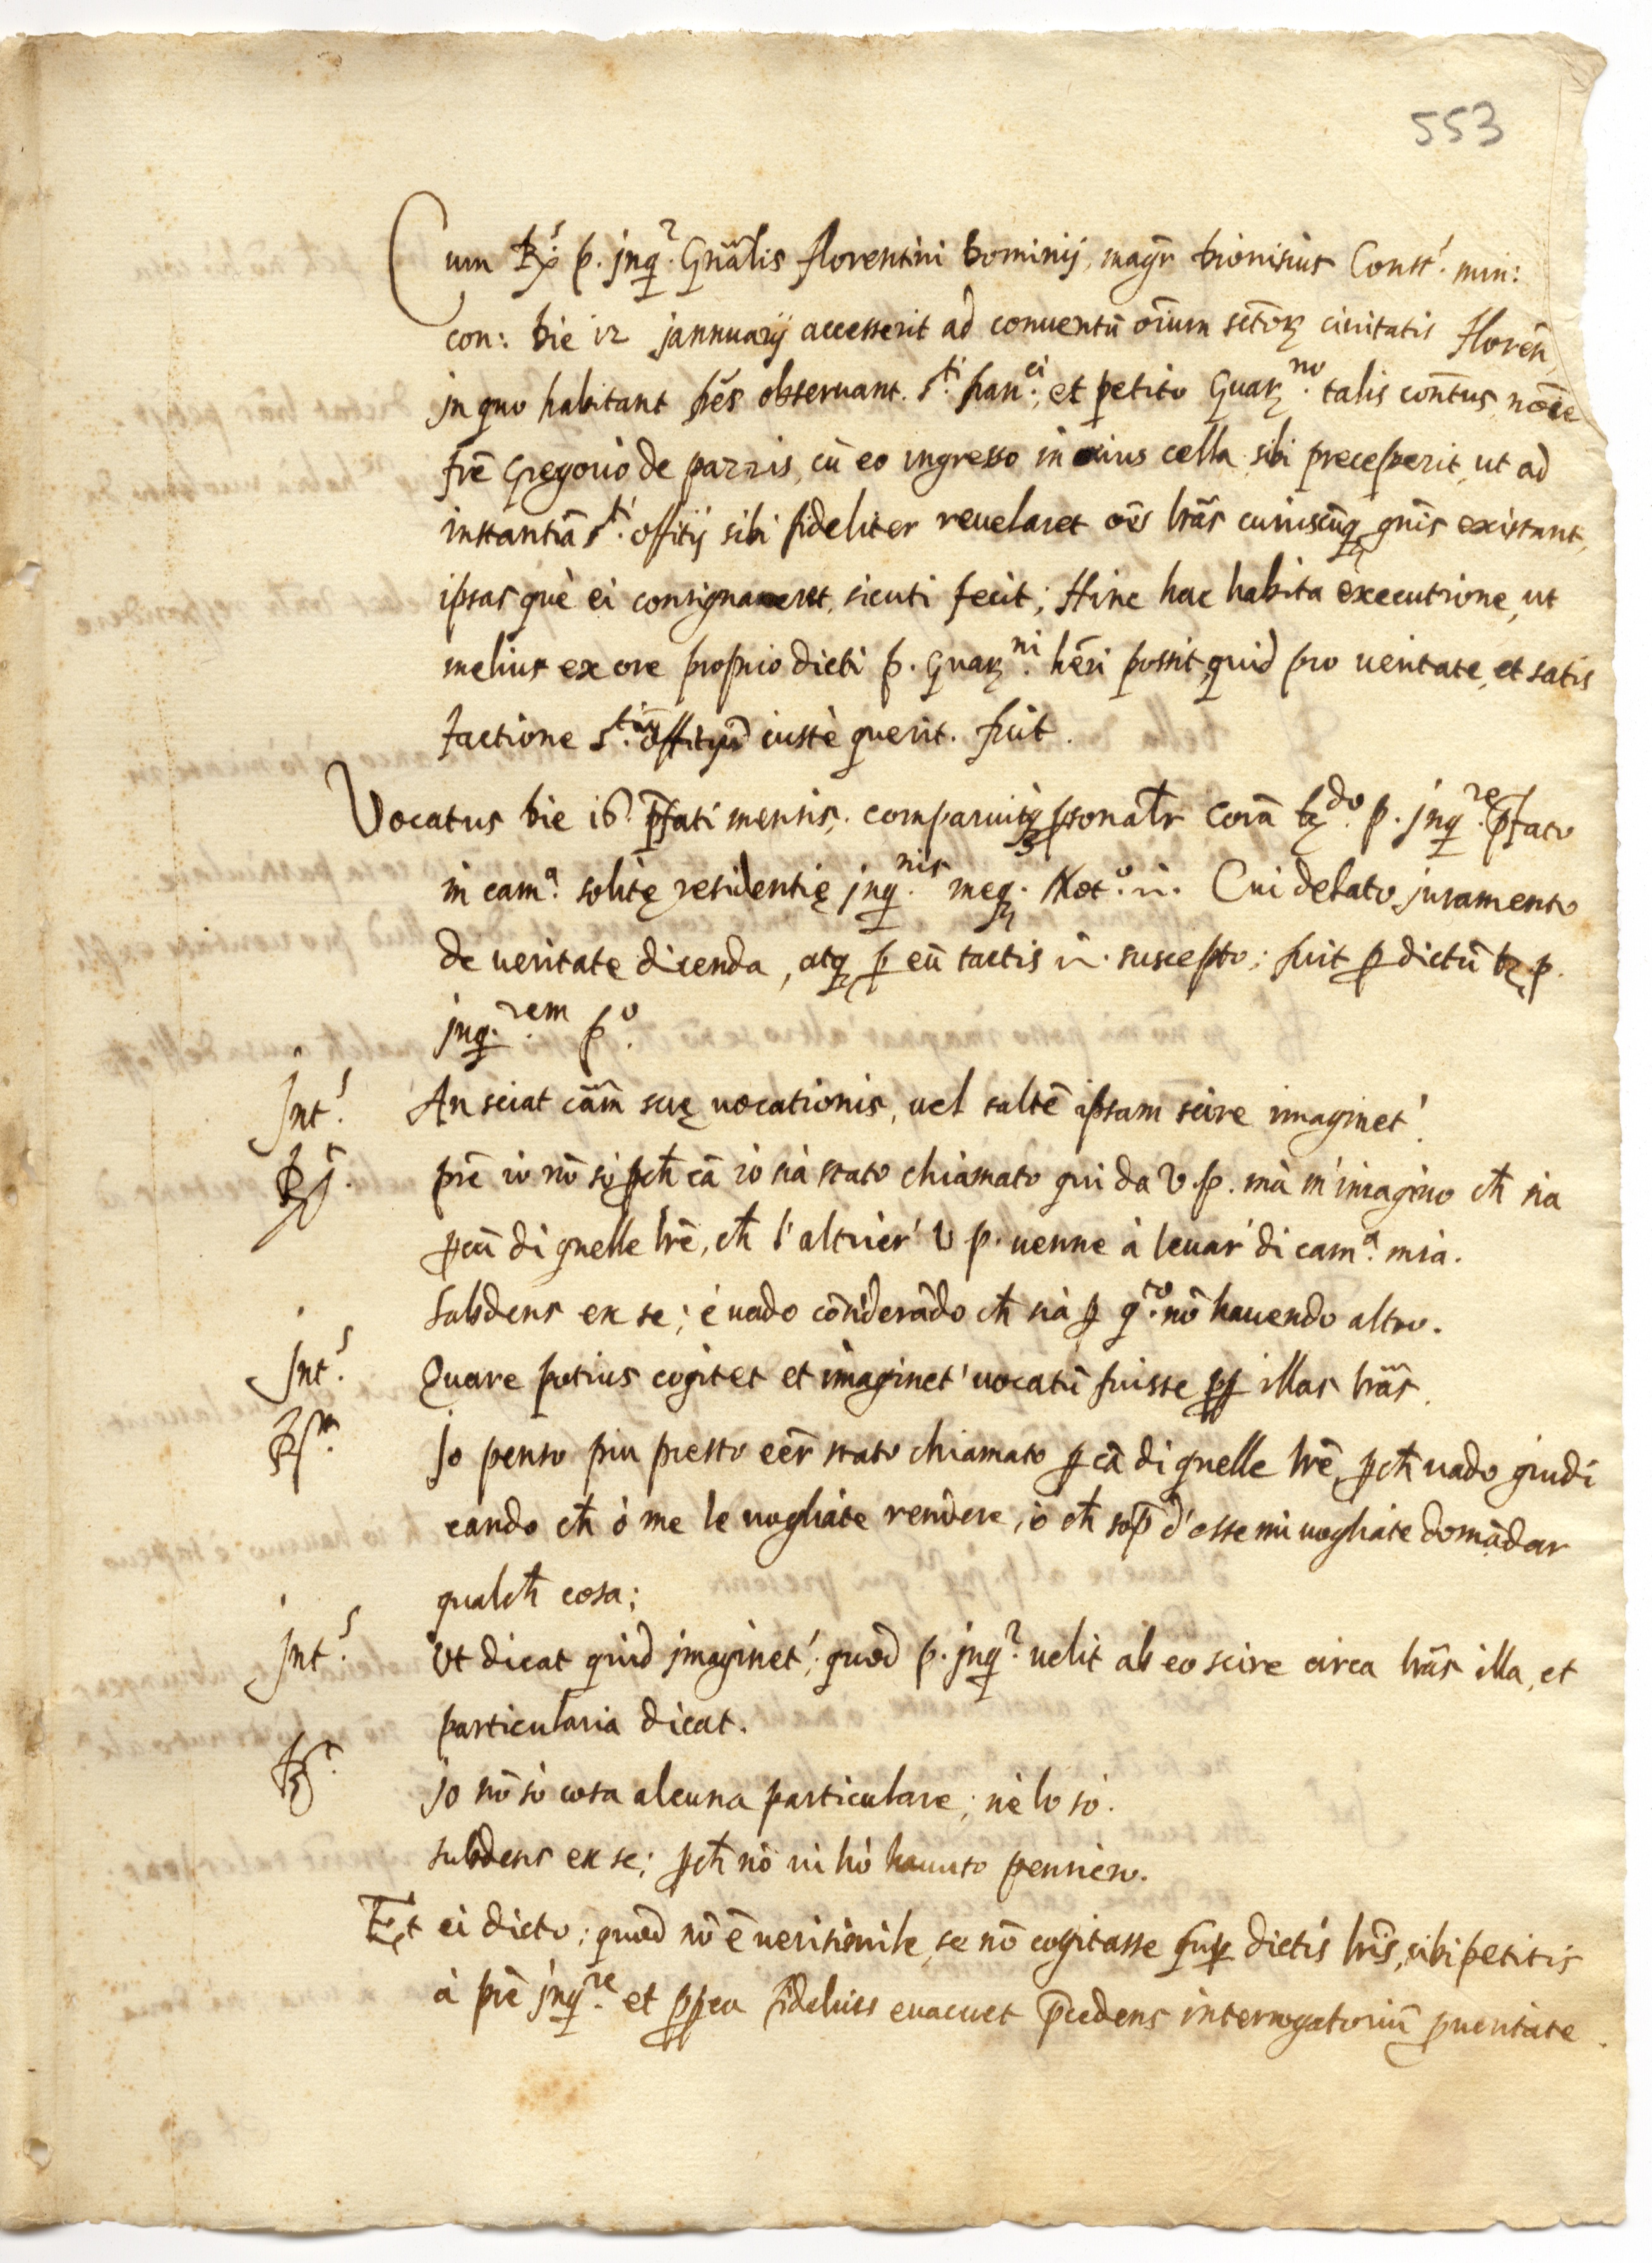 553
Cum R.s p. jnq.r Gnãlis florentini Dominij, magr̃ Dionisius Const.s min:
con: Die 12 jannuarij accesserit ad conuentũ oĩum sctõrꝝ ciuitatis florẽn,
in quo habitant frẽs obseruant. S.ti fran.ci, et petito Guarꝝ.no talis conũtus, nõĩe
frẽ Gregorio de pazzis, cũ eo ingresso in eius cella sibi preceperit, ut ad
instantiã S.ti offitij sibi fideliter reuelaret oẽs lrãs cuiuscũq gnĩs existant,
ipsas què ei consignaret, sicuti fecit; Hinc hac habita executione, ut
melius ex ore proprio dicti p. Guarꝝ.ni hẽri possit, quid pro ueritate, et satis
factione S.tũ offitiũ iustè querit. fuit.
Vocatus Die 16 p̃fati mensis, comparuitq ꝑsonalr̃ Corã R.do p. jnq.re p̃fato
in cam.a solitę residentię jnq.nis meq. Not.o ñ. Cui delato juramento
de ueritate dicenda, atq ꝑ eũ tactis ñ. suscepto; fuit ꝑ dictũ R. p.
jnq.rem p.o
Int.s An sciat cãm suę uocationis, uel saltẽ ipsam scire imaginet'.
R.t prẽ io nõ sò ꝑch̃ cã io sia stato chiamato qui da V. p. mà m'imagino ch̃ sia
ꝑ cã di quelle lrẽ, ch̃ l'altrier' V p. uenne à leuar' di cam.a mia.
Subdens ex se; è uado cõsiderãdo ch̃ sia ꝑ q.to nõ hauendo altro.
Int.s Quare potius cogitet et imaginet' uocatũ fuisse ꝓꝑ illas lrãs.
R.t Io penso piu presto eẽr stato chiamato ꝑ cã di quelle lrẽ, ꝑch̃ uado giudi
cando ch̃ ò me le uogliate rendere, ò ch̃ sop̃ d'esse mi uogliate domãdar
qualch̃ cosa;
Int.s Ut dicat quid jmaginet', quod p. jnq.r uelit ab eo scire circa lrãs illa, et
particularia dicat.
R.t Io nõ sò cosa alcuna particulare; nè lo sò.
subdens ex se; ꝑch̃ nõ ui hò hauuto pensiero.
Et ei dicto; quod nõ ẽ uerisimile, se nõ cogitasse suꝑ dictis lrĩs, sibi petitis
à prẽ jnq.re et ꝓꝑea fidelius euacuet p̃cedens interrogatoriũ ꝓ ueritate.